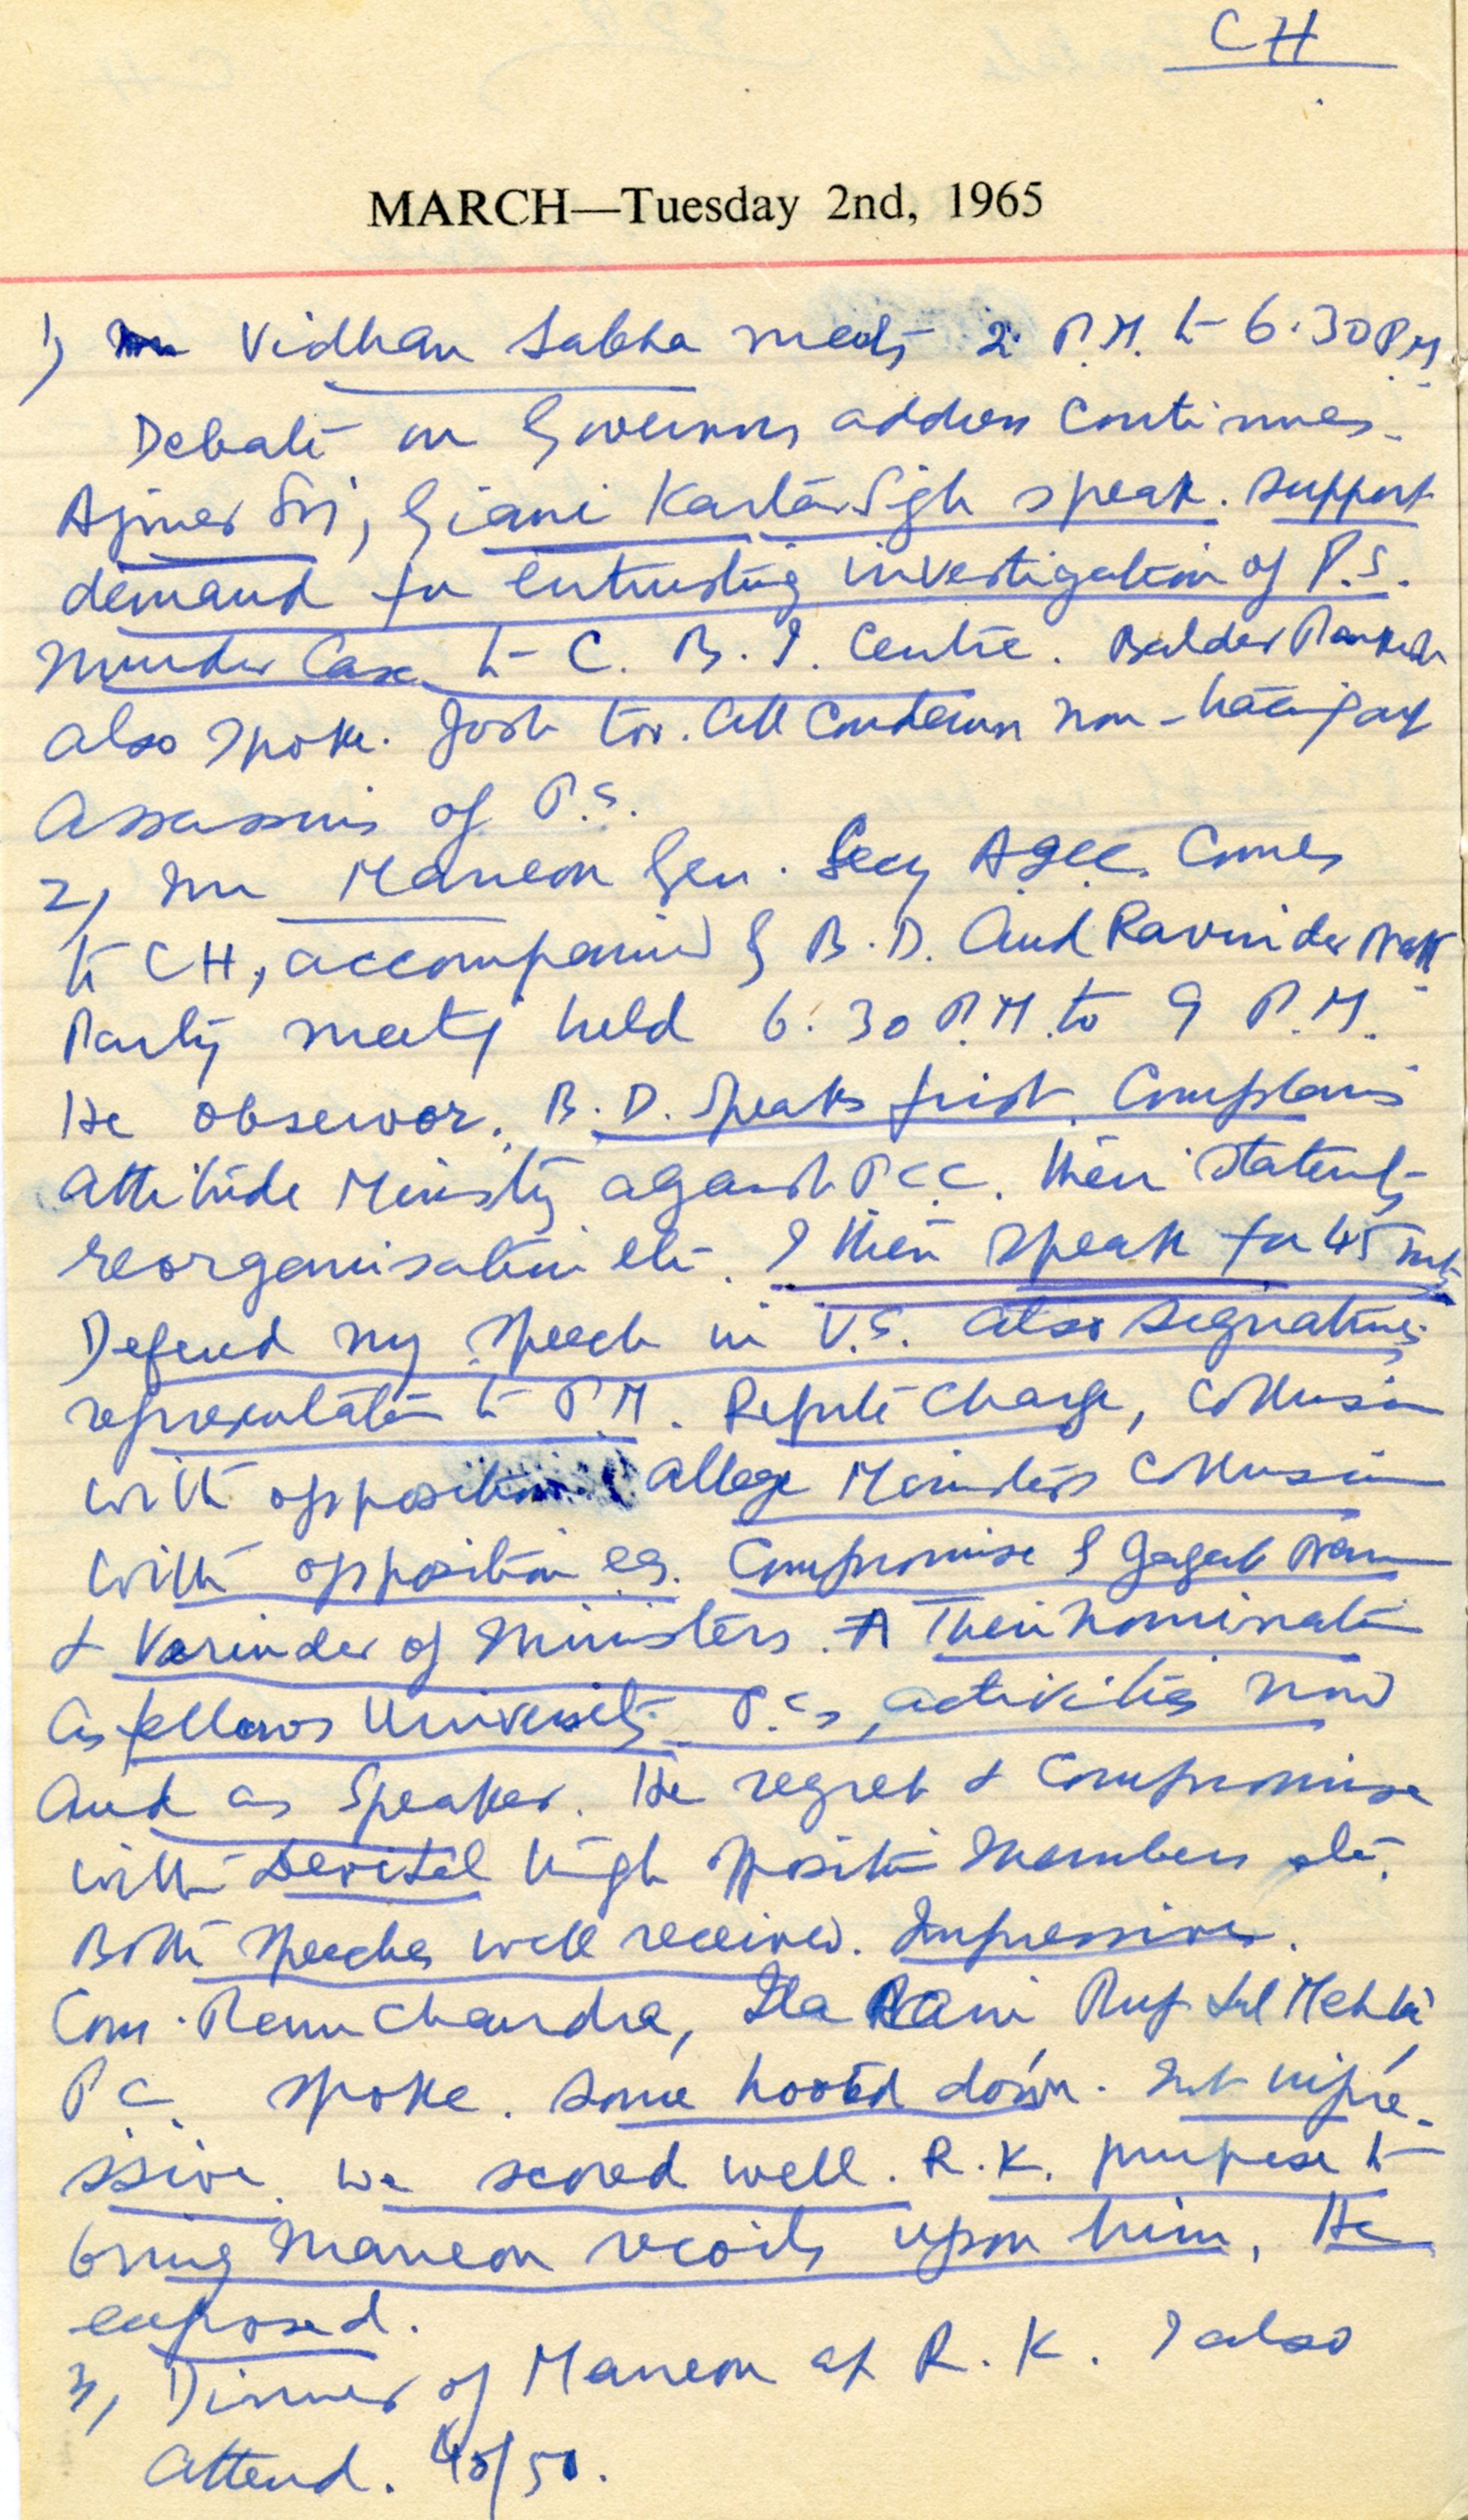 CH
MARCH—Tuesday 2nd, 1965
1) Vidhan Sabha meets 2 P.M. to 6.30 P.M.
Debate on Governors address continues.
Ajmer Sri, Giani Kartar Sgh speak. Support
demand for entrusting investigation of P.S.
Murder Case to C. B. I. Centre. Baldev
also spoke. Josh too. All condemn non-
Assassins of P.S.
2) Mr Maneon Gen. Secy AICC. Comes
to CH, accompanied by B.D. and Ravinder
Party meeting held 6.30 P.M. to 9 P.M.
He observor. B.D. speaks first. Complains
attitude Ministry against PCC. Their statements
reorganisation etc. I then speak for 45 mts
Defend my speech in V.S. also signatures
representation to P.M. Refute Charge, Collusion
with opposition. Allege Ministers collusion
with opposition eg. Compromise by Jagat Narain
& Varinder of Ministers. Their nomination
as fellows University. P.C's activities now
and as Speaker. He regret & compromise
with Devilal high opposition members etc.
Both speeches well received. Impressive.
Com. Ram Chandra, Ila Rani Rup Lal Mehta
P.C. spoke. Some hooted down. Not impre-
ssive. We scored well. R.K. purpose to
bring Maneon recoils upon him. He
exposed.
3) Dinner of Maneon at R.K. I also
Attend. 40/50.